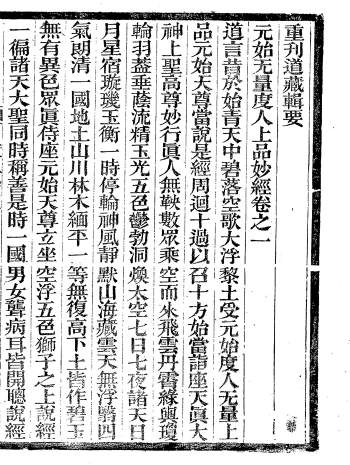 重刊道藏輯要
元始无量度人上品妙經卷之一
道言昔於始青天中碧落空歌大浮黎土受元始度人无量上
品元始天尊當說是經周迴十過以召十方始當詣座天真大
神上聖高尊妙行真人無鞅數衆乘空而來飛雲丹霄綠輿瓊
輪羽蓋垂蔭流精玉光五色鬱勃洞煥太空七日七夜諸天日
月星宿璇璣玉衡一時停輪神風靜默山海藏雲天無浮翳四
氣朗清一國地土山川林木緬平一等無復高下土皆作碧玉
無有異色眾真侍座元始天尊玄坐空浮五色獅子之上說經
一徧諸天大聖同時稱善是時一國男女聾病耳皆開聰說經